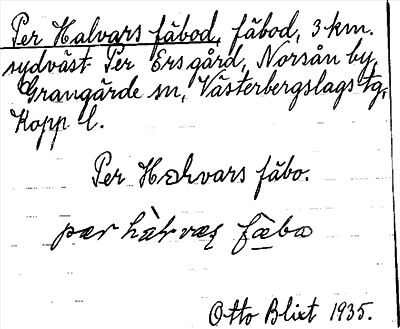 Per Halvars fäbod, fäbod, 3 km.
sydväst Per Ersgård, Norsån by,
Grangärde sn, Västerbergslags tg,
Kopp l.
Per Halvars fäbo.
fäbo
Otto Blixt 1935.